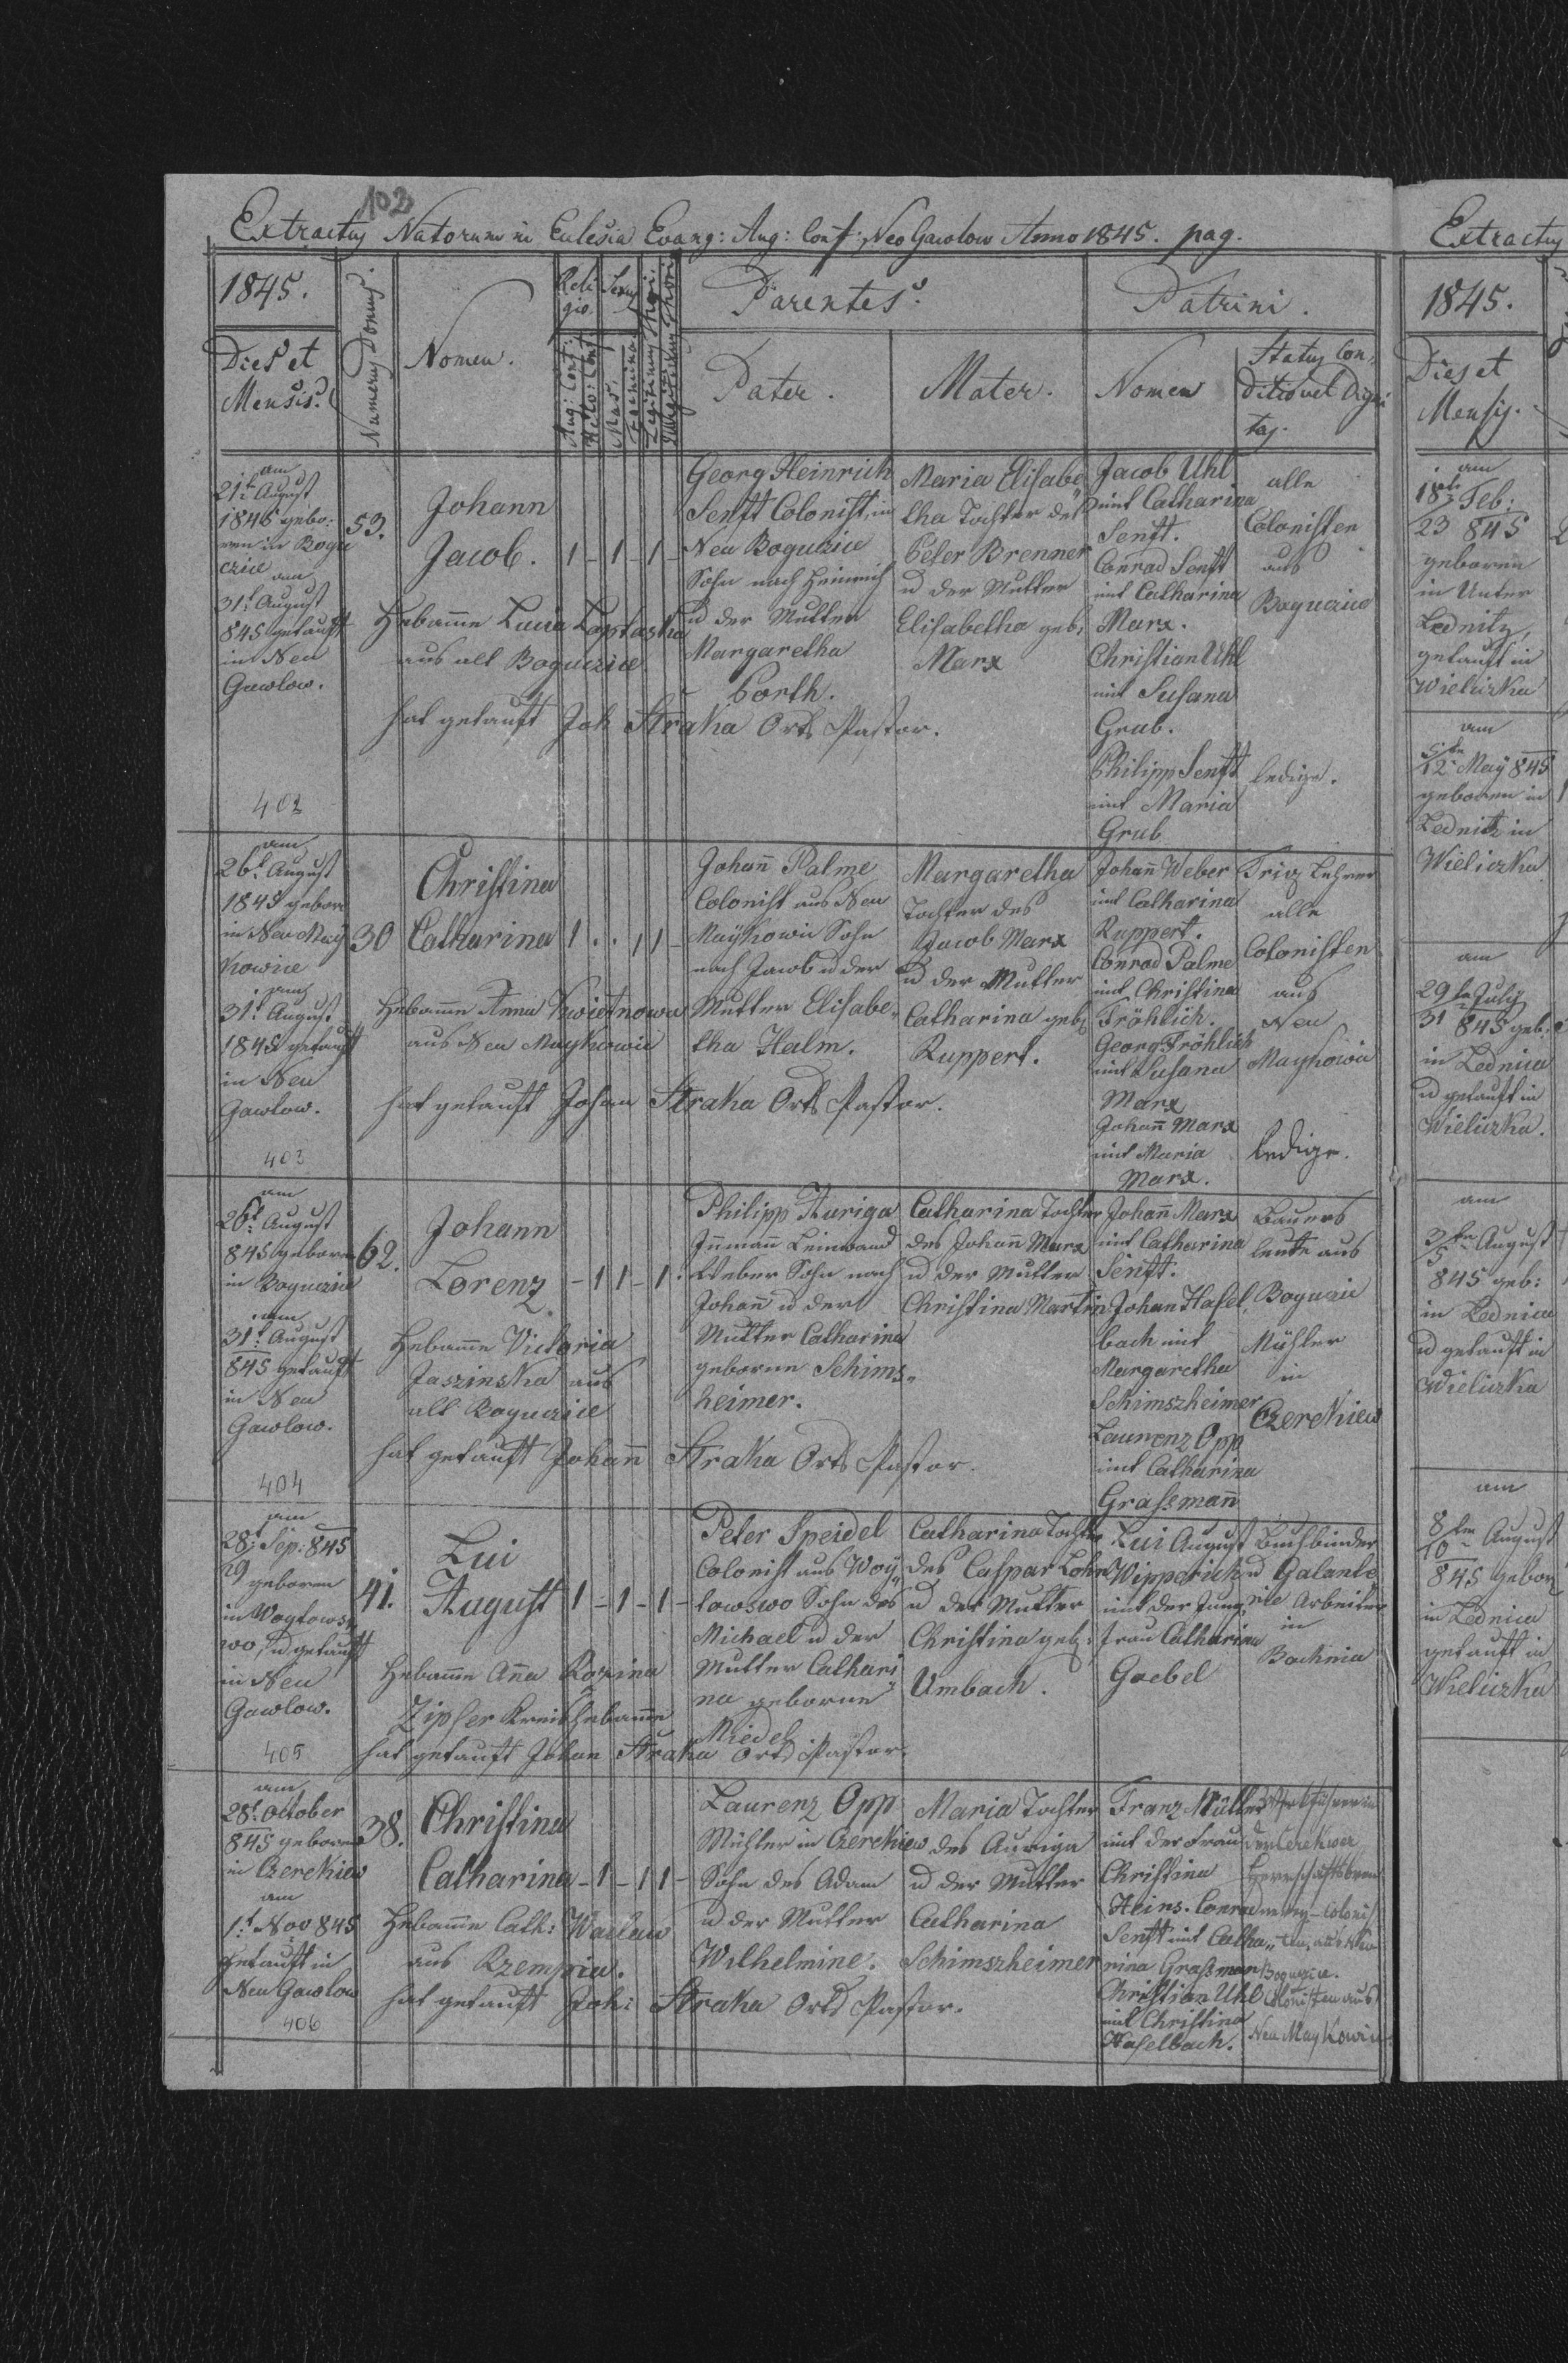 102
Extractus Natorum in Eclesia Evang: Aug: Conf: Neo Gawlow Anno 1845. pag.
1845.
Dies et
Mensis.
Numerus Domus.
Nomen.
Religio
Sexus
Aug: Conf:
Helv: Conf
Mas.
Foemina
Parentes.
Pater.
Mater.
Patrini.
Nomen
Status Con,
ditio vel Digni
tas.
am
21t August
1845 gebo:
ren in Bogu
czice
am
31t August
845 getauft
in Neu
Gawlow.
402
53.
Johann
Jacob. 1 - 1 - 1 -
Hebame Lucia Laptaska
aus alt Boguczice
hat getauft Joh Straka Orts Pastor.
Georg Heinrich
Senft Colonist, in
Neu Boguczice
Sohn nach Heinrich
u der Mutter
Margaretha
Corth.
Maria Elisabe
tha Tochter des
Peter Brenner
u der Mutter
Elisabetha geb:
Marx
Jacob Uhl
mit Catharina
Senft.
Conrad Senft
mit Catharina
Marx.
Christian Uhl
mit Susana
Grub.
Philipp Senft
mit Maria
Grub
alle
Colonisten
aus
Boguczice
ledige.
am
26t August
1845 gebor
in Neu May
kowice
am
31t August
1845 getauft
in Neu
Gawlow.
403
30
Christina
Catharina 1 . . 1 1 -
Hebame Anna Kwietnowa
aus Neu Maykowic
hat getauft Johan Straka Orts Pastor.
Johann Palme
Colonist aus Neu
Maykowic Sohn
nach Jacob u der
Mutter Elisabe,,
tha Halm.
Margaretha
Tochter des
Jacob Marx
u der Mutter
Catharina geb:
Ruppert.
Johann Weber
mit Catharina
Ruppert.
Conrad Palme
mit Christina
Fröhlich.
Georg Fröhlich
mit Susana
Marx
Johann Marx
mit Maria
Marx.
Triv Lehrer
alle
Colonisten
aus
Neu
Maykowic
ledige.
am
26t August
845 geboren
in Boguczice
am
31t August
845 getauft
in Neu
Gawlow.
404
62.
Johann
Lorenz - 1 1 - 1 .
Hebame Victoria
Jaszinska aus
alt Boguczice
hat getauft Johann Straka Orts Pastor.
Philipp Auriga
Inmann Leinwand
Weber Sohn nach
Johann u der
Mutter Catharina
geborne Schims,,
heimer.
Catharina Tochter
des Johann Marx
u der Mutter
Christina Martin
Johann Marx
mit Catharina
Senft.
Johan Hasel,
bach mit
Margaretha
Schimszheimer
Laurenz Opp
mit Catharina
Grassmann
Bauers
leute aus
Boguczic
Mühler
in
Czerekiew
am
28t Sep: 845
29 geboren
in Woytows
wo, u getauft
in Neu
Gawlow.
405
41.
Lui
August 1 - 1 - 1 -
Hebame Anna Rozina
Zipser Kreishebame
hat getauft Johan Straka Orts Pastor.
Peter Speidel
Colonist aus Woy,,
towswo Sohn des
Michael u der
Mutter Cathari
na geborne
Miedel
Catharina Tochter
des Caspar Lohn
u der Mutter
Christina geb:
Umbach.
Lui August
Wipperich
mit der Jung,
frau Catharina
Goebel
Buchbinder
u Galante
rie Arbeiter
in
Bochnia
am
28t October
845 geboren
in Czerekiew
am
1t Nov 845
getauft in
Neu Gawlow
406
38.
Christina
Catharina - 1 - 1 1 -
Hebame Cath: Waclaw
aus Rzempia.
hat getauft Joh: Straka Orts Pastor.
Laurenz Opp
Mühler in Czerekiew
Sohn des Adam
u der Mutter
Wilhelmine.
Maria Tochter
des Auriga
u der Mutter
Catharina
Schimszheimer
Franz Müller
mit der Frau
Christina
Heins. Conrad
Senft mit Catha,,
rina Grassman
Christian Uhl
mit Christina
Haselbach.
Boguczice.
Colonisten aus
Neu Maykowic
Extractus
1845.
Dies et
Mensis.
am
18te Feb:
23 845
geboren
in Unter
Lednitz,
getauft in
Wieliczka
am
5te
12 May 845
geboren in
Lednitz in
Wieliczka
am
29te July
31 845 geb:
in Lednica
u getauft in
Wieliczka.
am
3te August
5
845 geb:
in Lednica
u getauft in
Wieliczka
am
8ten August
10
845 gebor
in Lednica
getauft in
Wieliczka